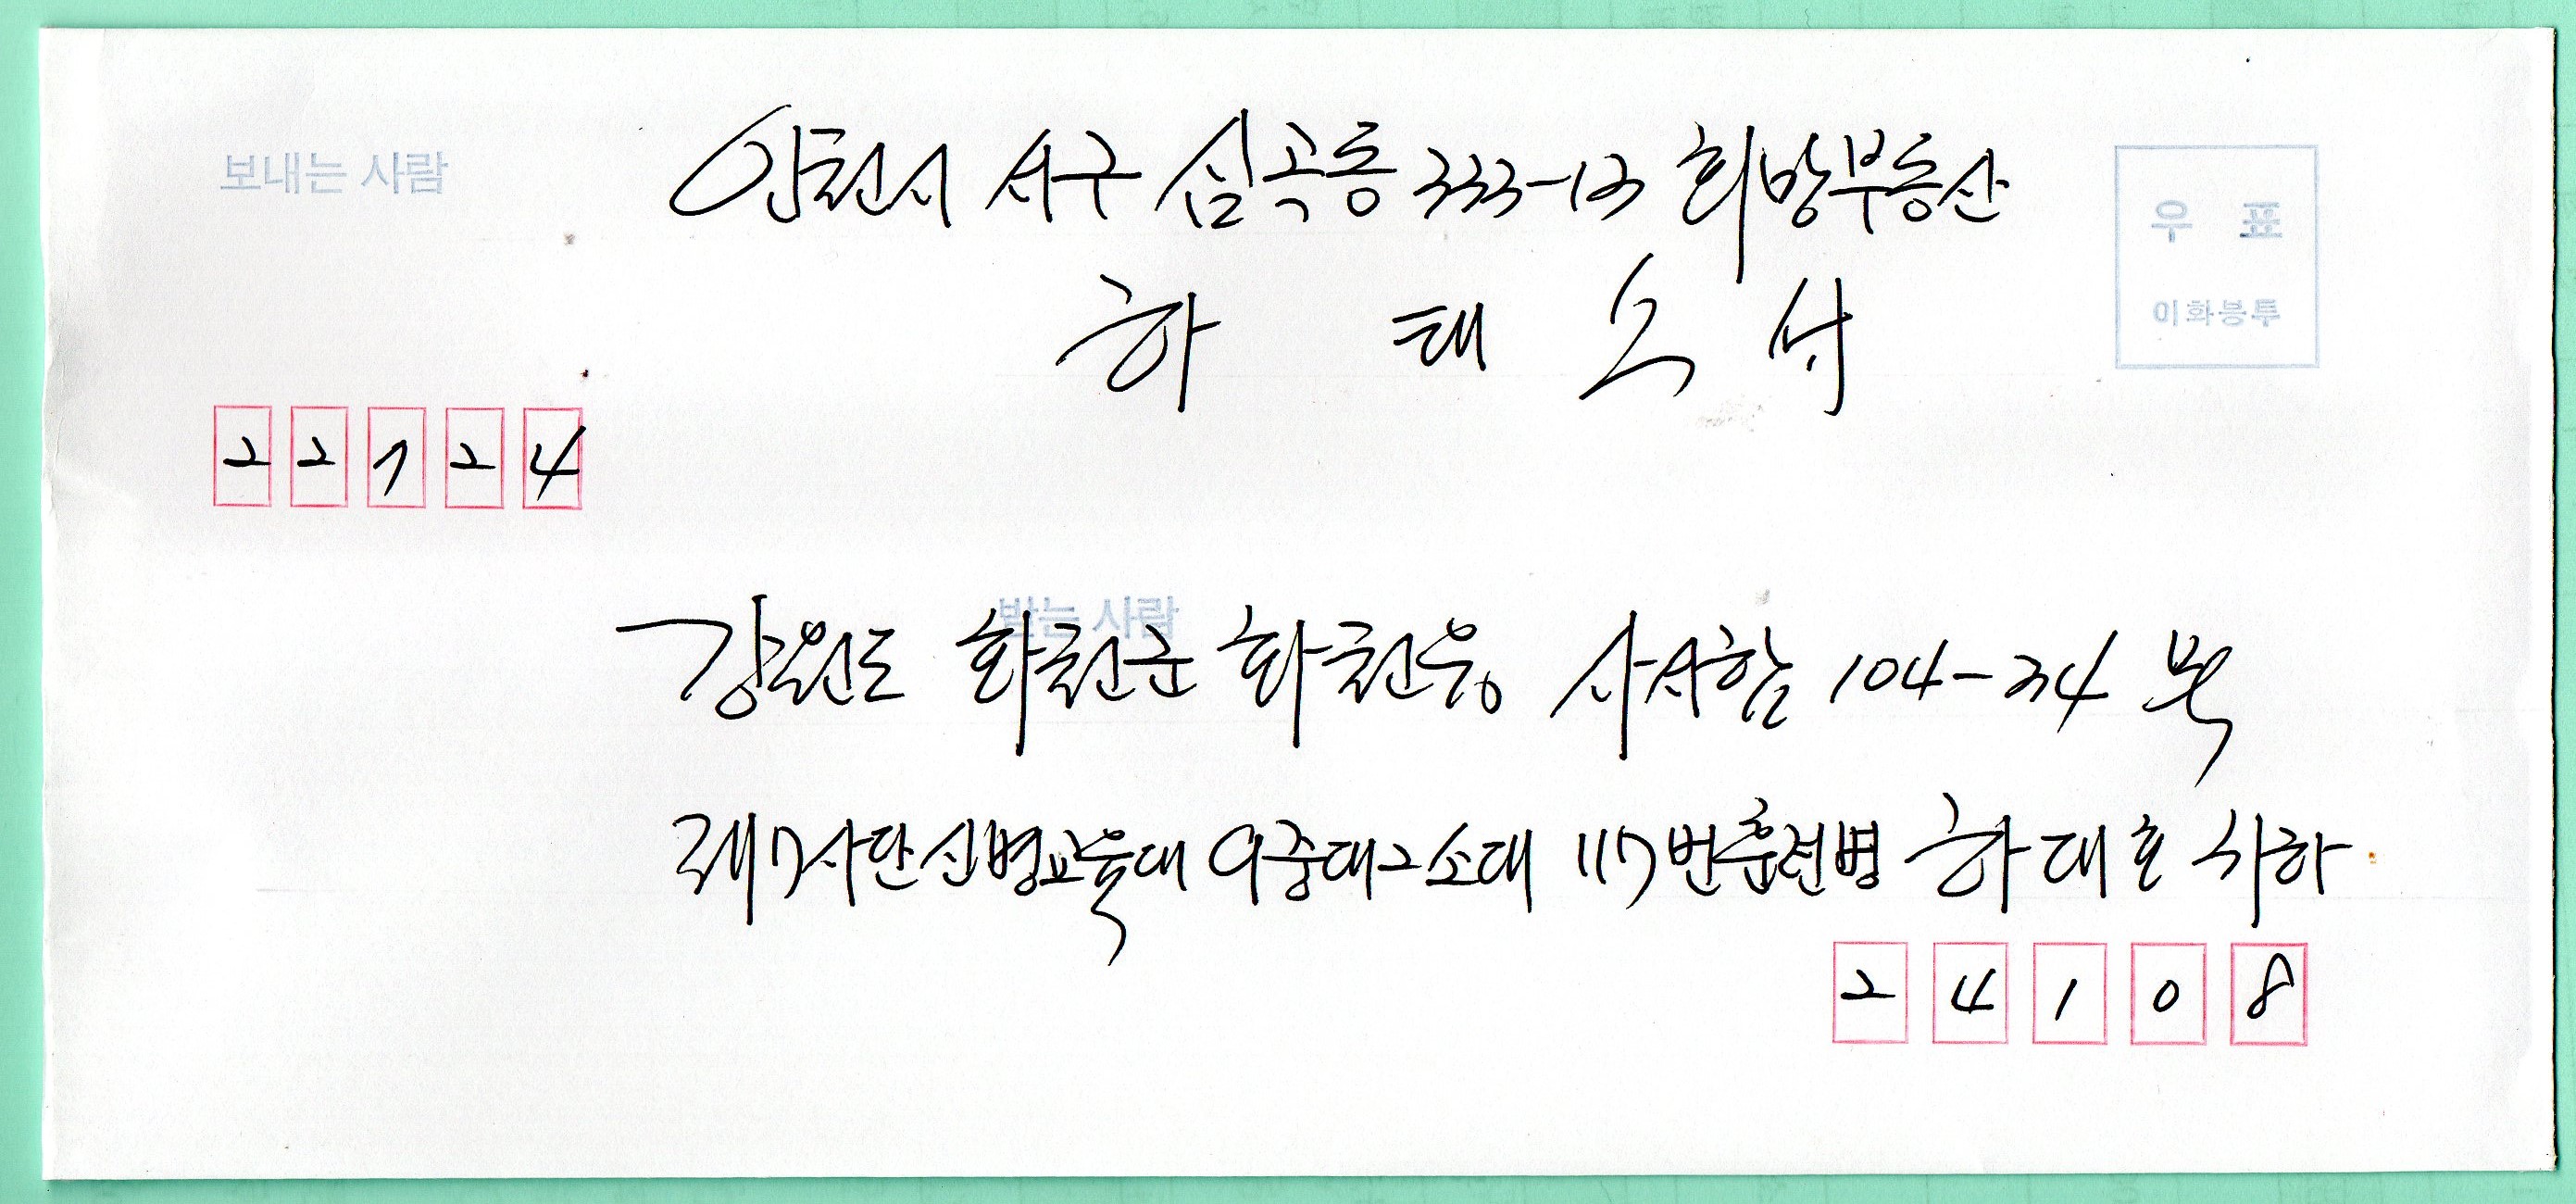 보내는 사람
인천시 서구 심곡동 333-13 희망부동산
우 표
하 태
이화봉투
22724
받는 사람
강원도 화천군 화천읍 사서함 104-34
제7사단신병교육대 9중대2소대 117번훈련병 하대호
24108